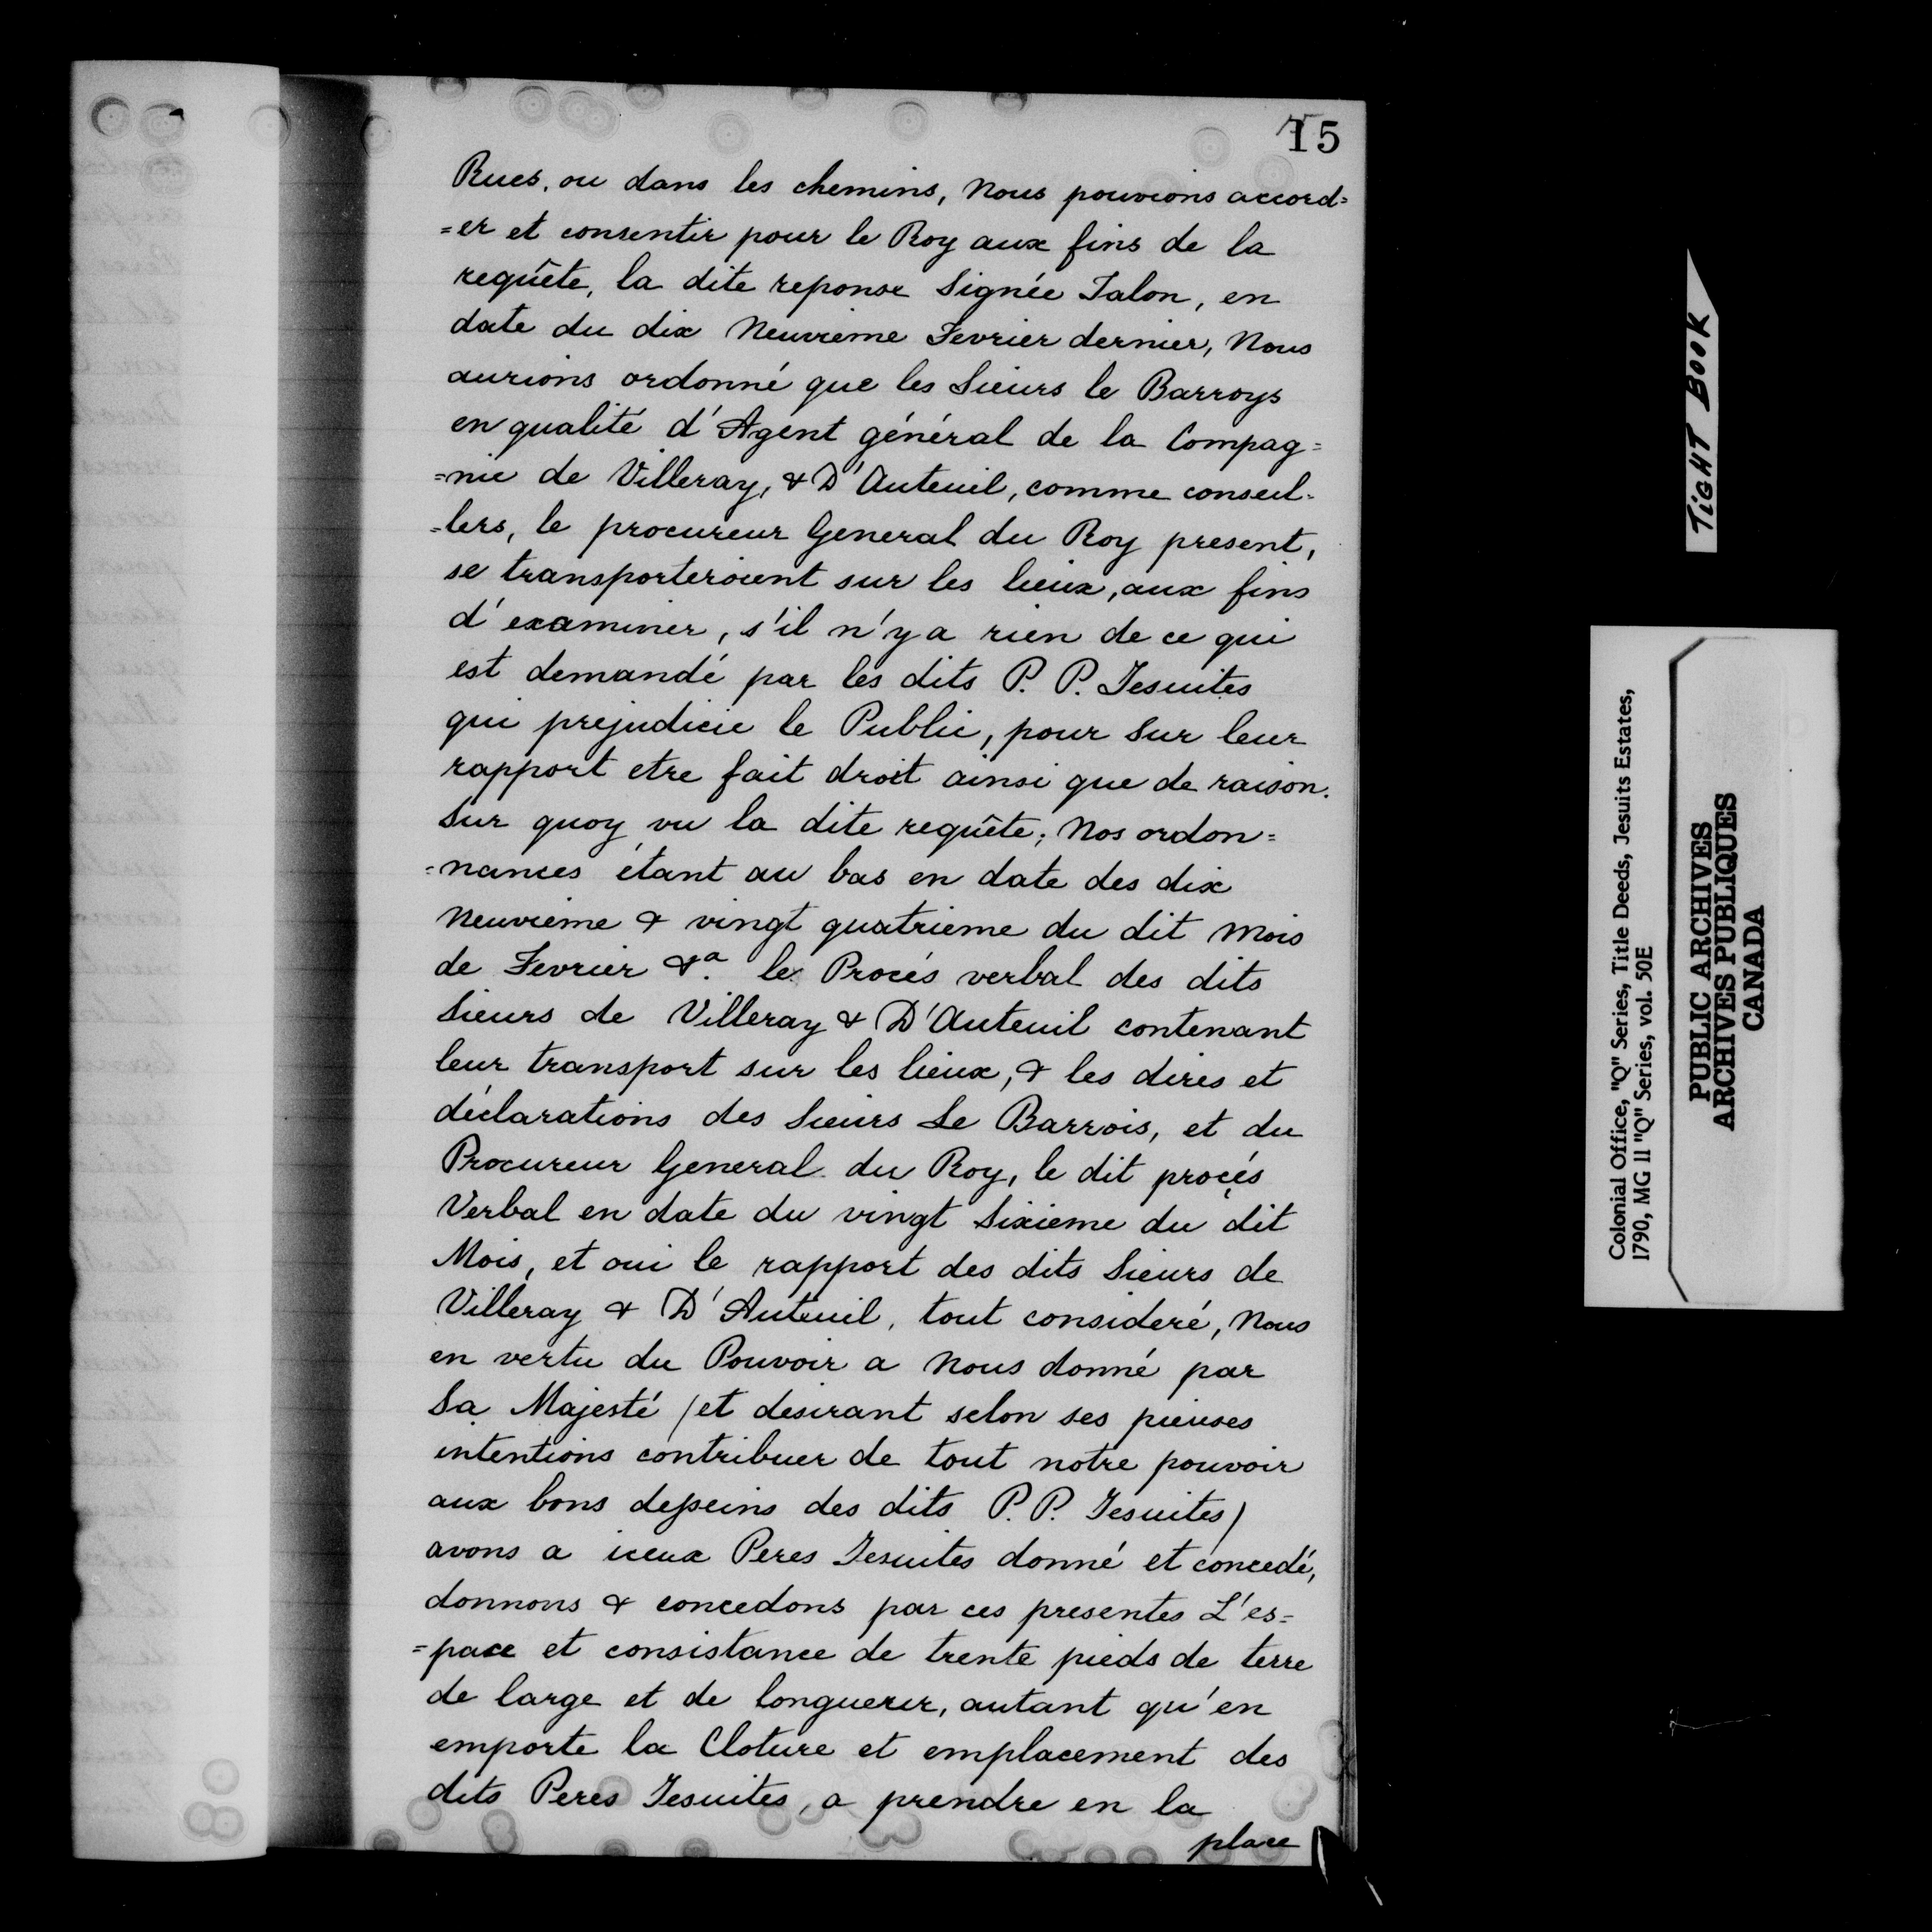 15
Rues, ou dans les chemins, Nous pouvions accord=
=er et consentir pour le Roy aux fins de la
requête, la dite reponse Signée Talon, en
date du dix Neuvieme Fevrier dernier, Nous
aurions ordonné que les Sieurs le Barroys
en qualité d'Agent général de la Compag=
=nie de Villeray, & D'Auteuil, comme conseil-
=lers, le procureur General du Roy present,
se transporteroient sur les lieux, aux fins
d'examiner, s'il n'y a rien de ce qui
est demandé par les dits P. P. Jesuites
qui prejudicie le Public, pour Sur leur
rapport etre fait droit ainsi que de raison.
Sur quoy vu la dite requête; Nos ordon=
=nances étant au bas en date des dix
Neuvieme & vingt quatrieme du dit Mois
de Fevrier &a. le Procés verbal des dits
Sieurs de Villeray & D'Auteuil contenant
leur transport sur les lieux, & les dires et
déclarations des Sieurs Le Barrois, et du
Procureur General du Roy, le dit procés
Verbal en date du vingt Sixieme du dit
Mois, et oui le rapport des dits Sieurs de
Villeray & D'Auteuil, tout consideré, Nous
en vertu du Pouvoir a Nous donné par
Sa Majesté (et desirant selon ses pieuses
intentions contribuer de tout notre pouvoir
aux bons desseins des dits P. P. Jesuites)
avons a iceux Peres Jesuites donné et concedé,
donnons & concedons par ces presentes L'es=
=pace et consistance de trente pieds de terre
de large et de longueur, autant qu'en
emporte la Cloture et emplacement des
dits Peres Jesuites, a prendre en la
place
TIGHT BOOK
Colonial Office, "Q" Series, Title Deeds, Jesuits Estates,
1790, MG 11 "Q" Series, vol. 50E
PUBLIC ARCHIVES
ARCHIVES PUBLIQUES
CANADA